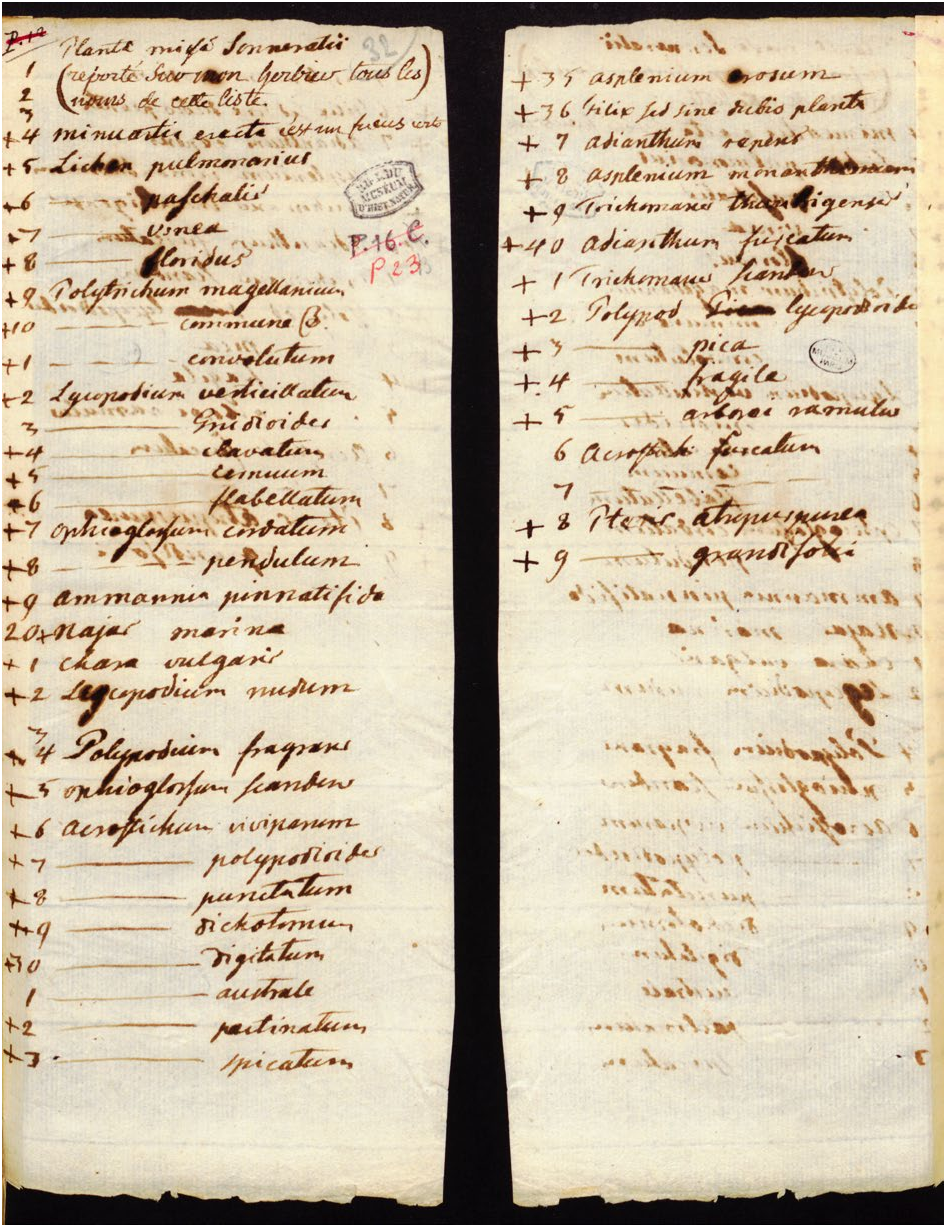 P. 12
32
Plante missæ Sonneratii
1 (reporté sur mon herbier tous les)
2 (noms de cette liste.
3
+4 minuartia erecta c'est un fucus
+5 Lichen pulmonarius
+6 — paschalis
+7 — usnea
+8 — floridus
+9 Polytrichum magellanicum
+10 — commune β.
+1 — convolutum
+2 Lycopodium verticillatum
3 — Gnidioides
+4 — clavatum
+5 — cernuum
+6 — flabellatum
+7 ophioglossum cordatum
+8 — pendulum
+9 ammannia pinnatifida
20+ Najas marina
+1 chara vulgaris
+2 Lycopodium nudum
3
+4 Polypodium fragrans
+5 ophioglossum scandens
+6 acrostichum viviparum
+7 — polypodioides
+8 — punctatum
+9 — dichotomum
+30 — digitatum
1 — australe
+2 — pectinatum
+3 — spicatum
MUSEUM
D'HIST. NATUR.
P. 16. C.
P 23
+35 asplenium erosum
+36 filix sed sine dubio planta
+7 adianthum repens
+8 asplenium monanthemum
+9 Trichomanes
+40 adianthum furcatum
+1 Trichomanes scandens
+2 Polypod lycopodioide
+3 — pica
+4 — fragile
+5 — arborei ramulus
6 acrostich furcatum
7 — —
+8 Pteris atropurpurea
+9 — grandifolia